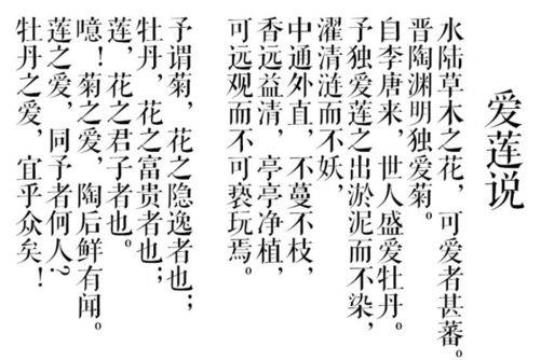 爱莲说
水陆草木之花，可爱者甚蕃。
晋陶渊明独爱菊。
自李唐来，世人盛爱牡丹。
予独爱莲之出淤泥而不染，
濯清涟而不妖，
中通外直，不蔓不枝，
香远益清，亭亭净植，
可远观而不可亵玩焉。
予谓菊，花之隐逸者也；
牡丹，花之富贵者也；
莲，花之君子者也。
噫！菊之爱，陶后鲜有闻。
莲之爱，同予者何人？
牡丹之爱，宜乎众矣！